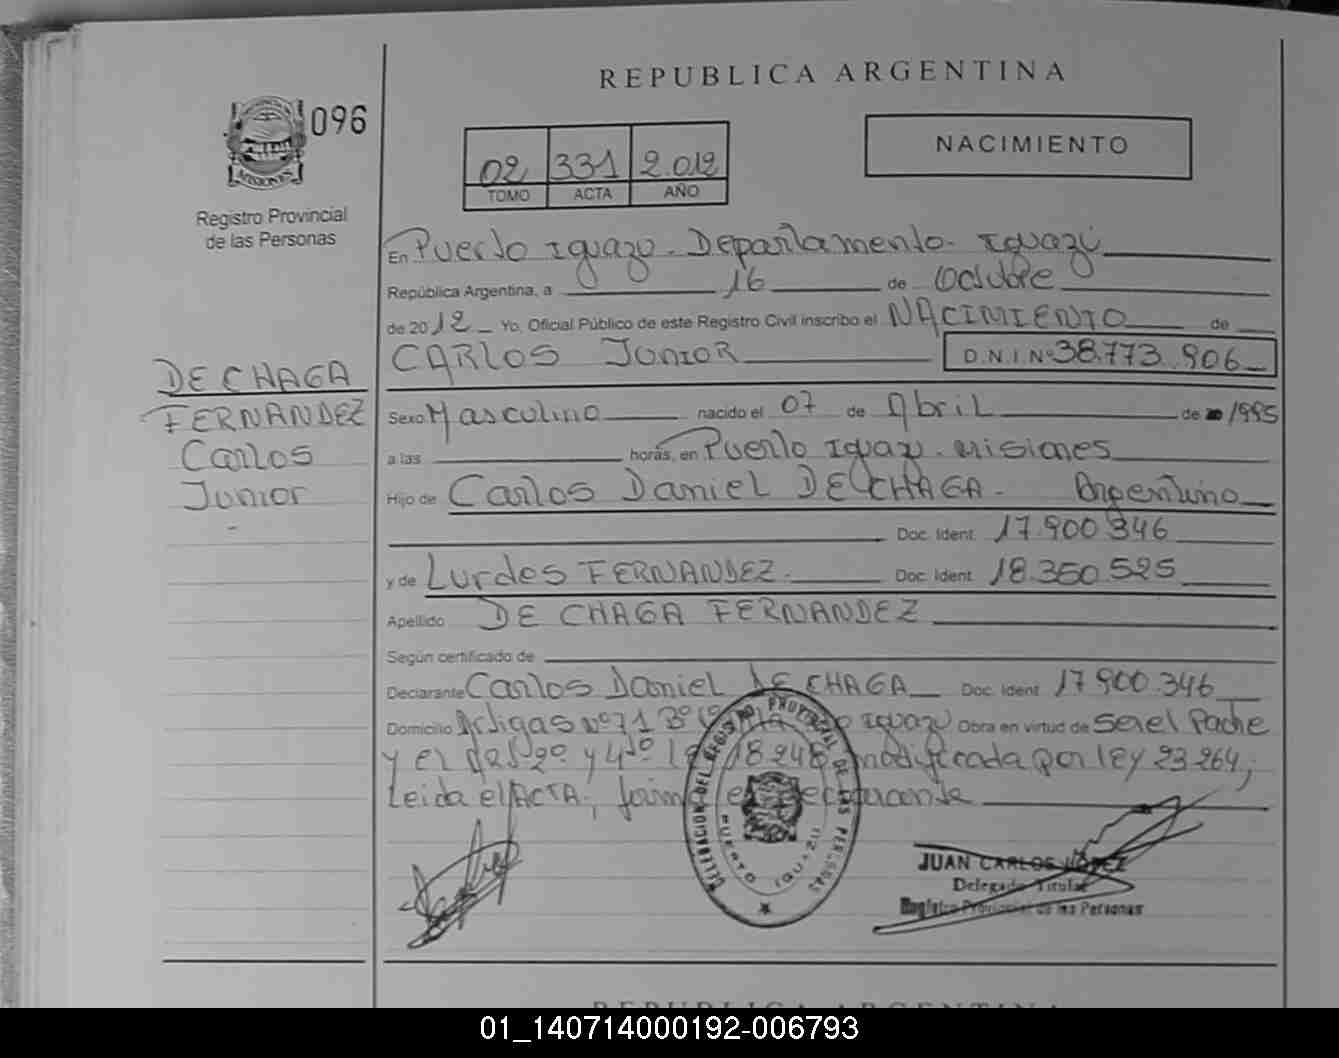 REPUBLICA ARGENTINA
096
MISIONES
Registro Provincial
de las Personas
02 331 2.012
TOMO ACTA AÑO
NACIMIENTO
En Puerto Iguazu - Departamento - Iguazú
República Argentina, a 16 de Octubre
de 2012 Yo, Oficial Público de este Registro Civil inscribo el NACIMIENTO de
CARLOS JUNIOR D.N.I. Nº 38.773.906
DE CHAGA
FERNANDEZ
Carlos
Junior
Sexo Masculino nacido el 07 de Abril de 1995
a las horas, en Puerto Iguazu - Misiones
Hijo de Carlos Daniel DE CHAGA - Argentino
Doc. Ident. 17.900.346
y de Lurdes FERNANDEZ. Doc. Ident. 18.350.525
Apellido DE CHAGA FERNANDEZ
Según certificado de
Declarante Carlos Daniel DE CHAGA Doc. Ident. 17.900.346
Domicilio Artigas Nº 71 Bº Iguazu Obra en virtud de ser el Padre
y el 2º y 4º 18.248 modificada por ley 23.264,
Leida el ACTA,
DELEGACION DEL REGISTRO PROVINCIAL DE LAS PERSONAS
PUERTO IGUAZU
JUAN CARLOS LOPEZ
Delegado Titular
Registro Provincial de las Personas
REPUBLICA ARGENTINA
01_140714000192-006793